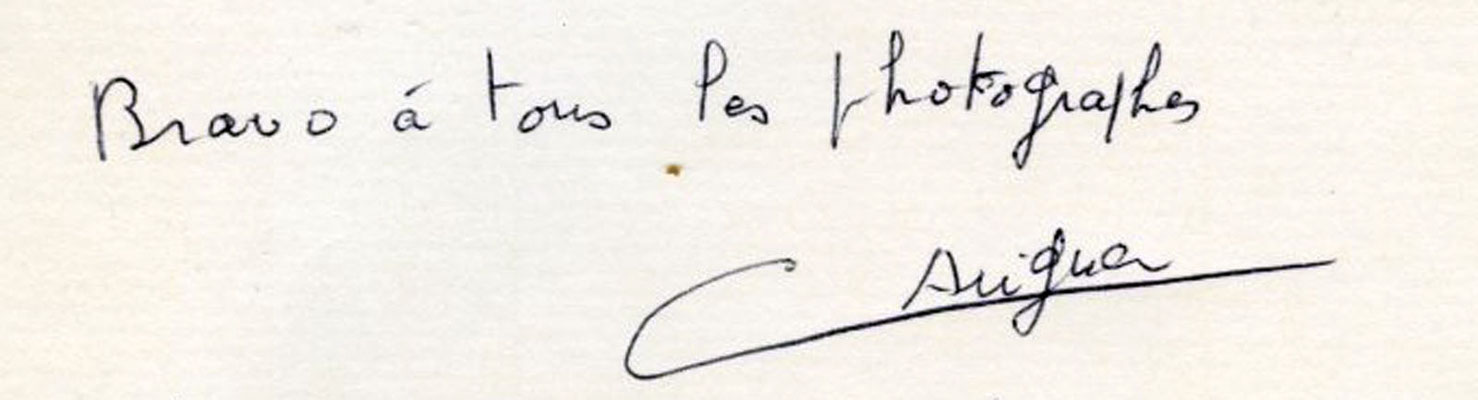 Bravo à tous les photographes